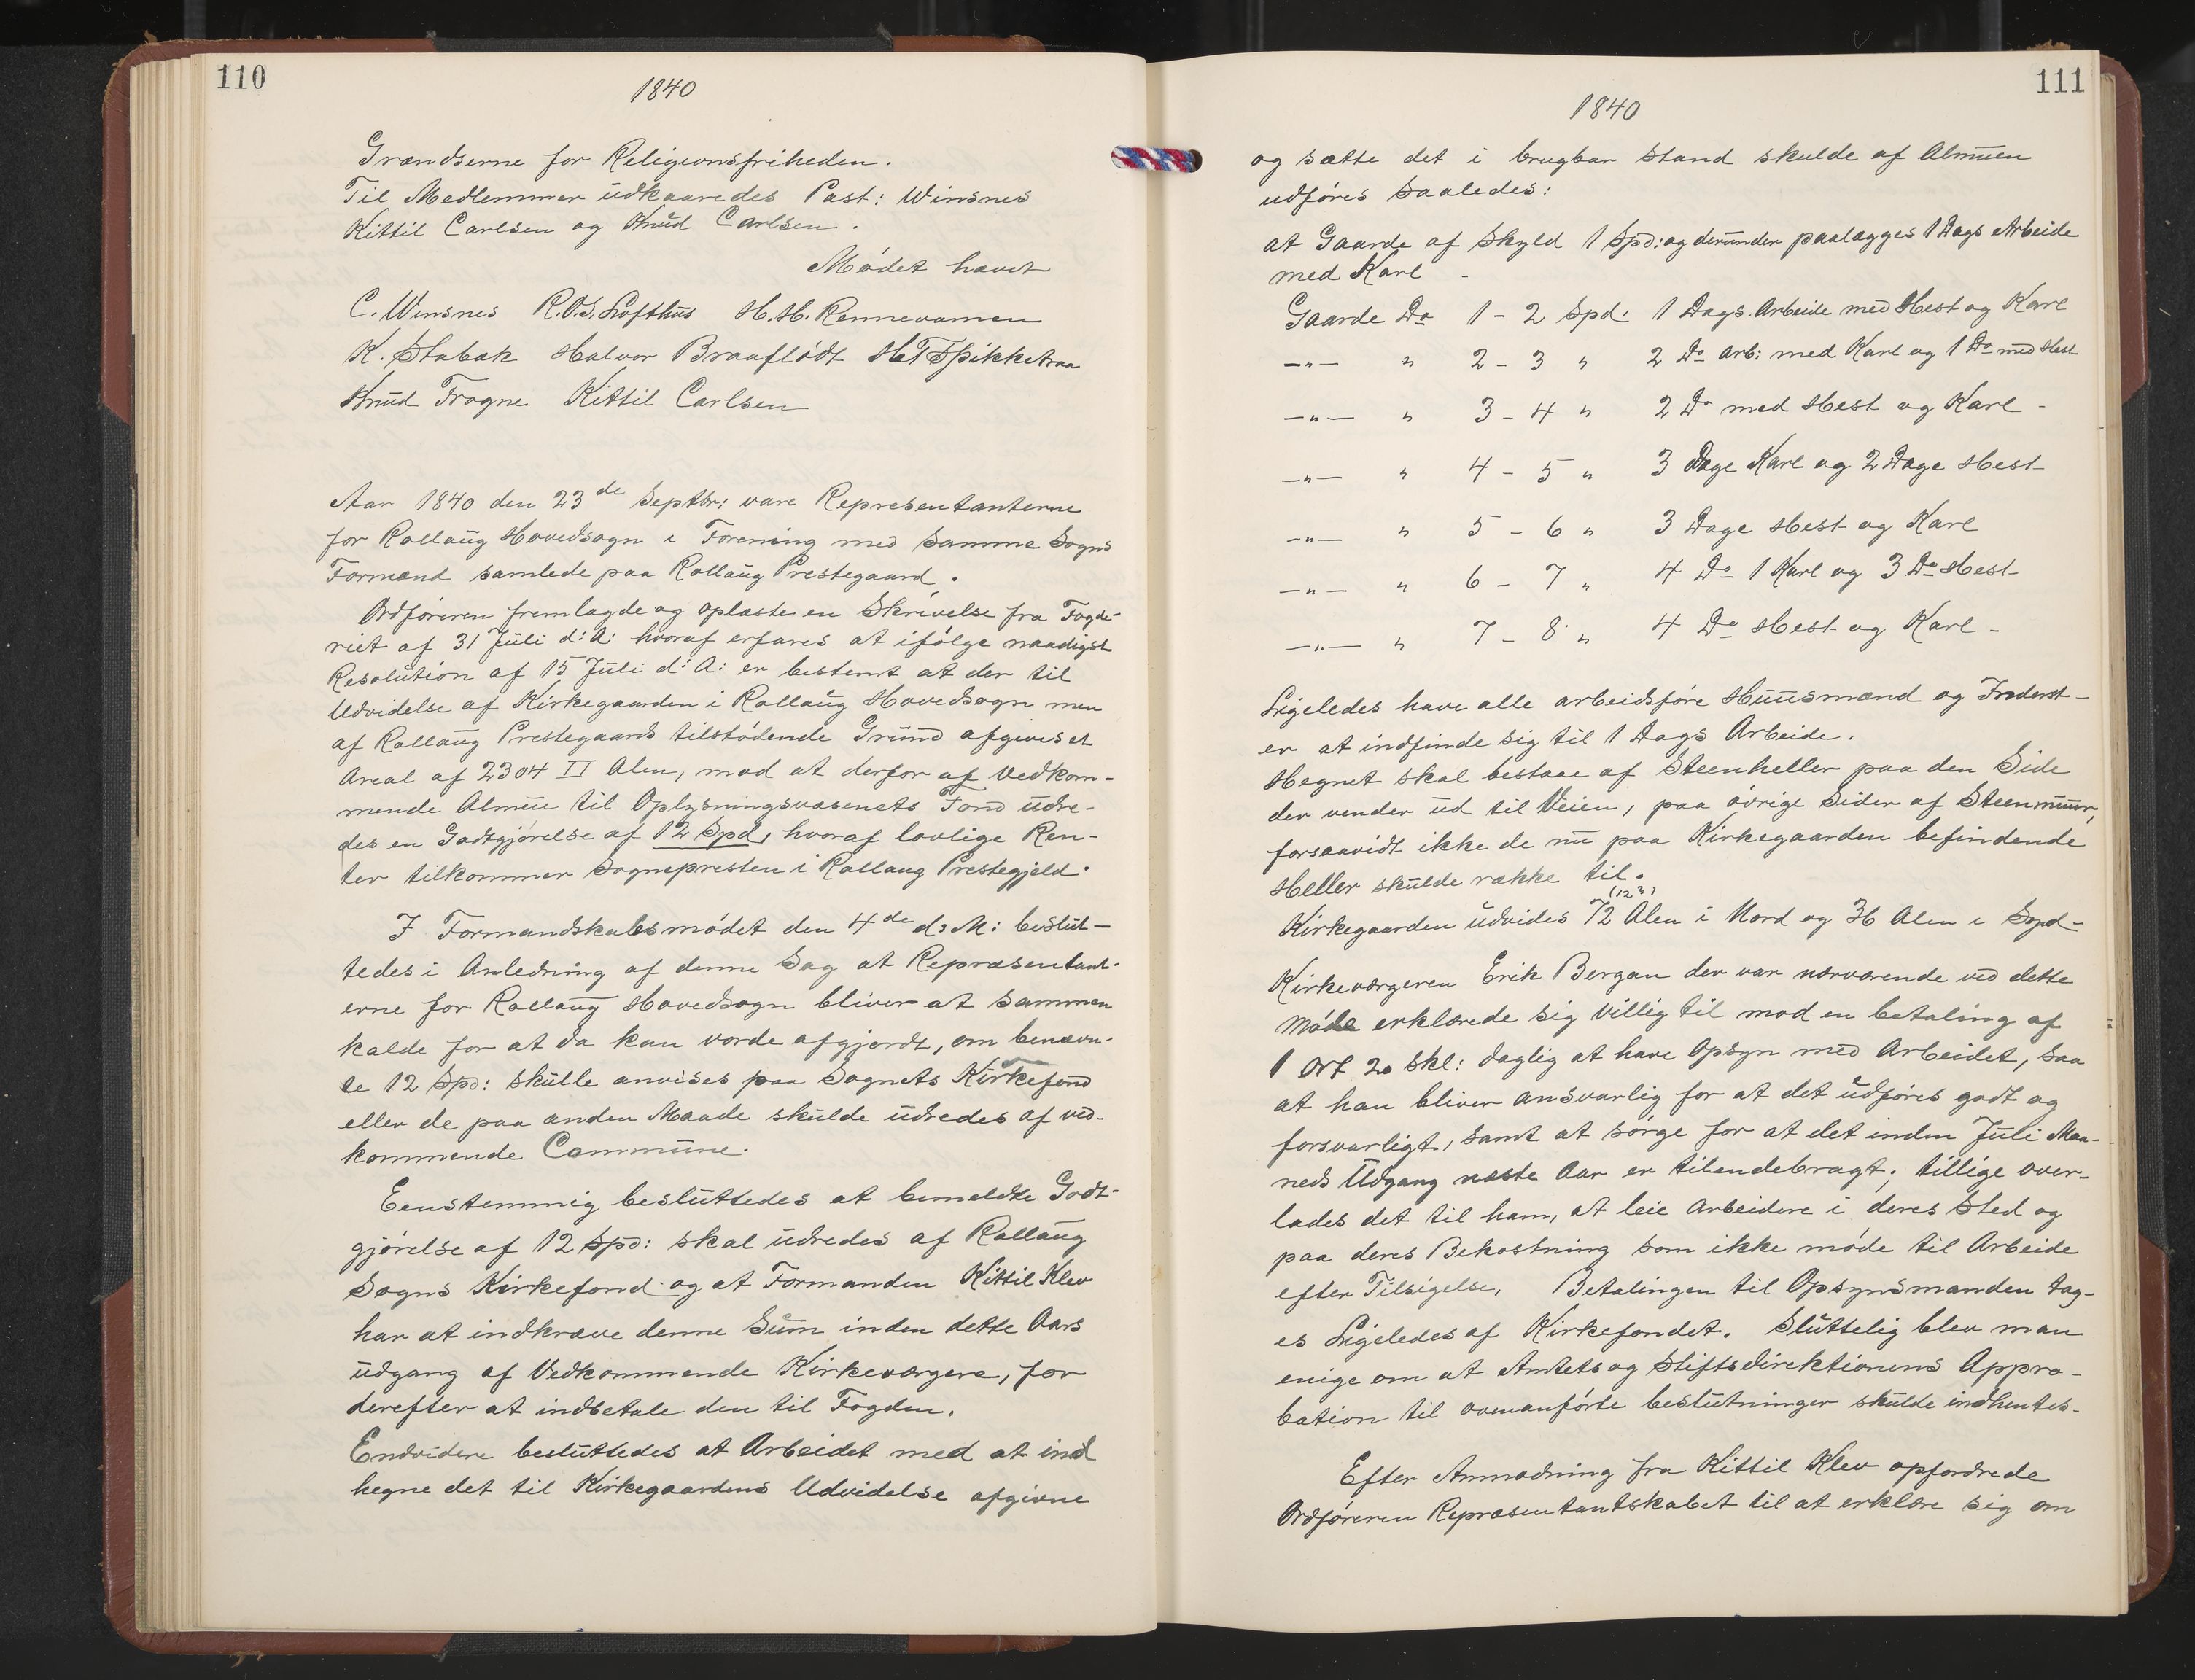 110
1840
Grændserne for Religionsfriheden.
Til Medlemmer udkaaredes Past: Winsnes
Kittil Carlsen og Knud Carlsen.
Mødet hævet
C. Winsnes R.O.S. Lofthus H.H. Rennevamen
K. Stabæk Halvor Braaflödt H.T. Spikkeraa
Knud Frogne Kittil Carlsen
Aar 1840 den 23de Septbr: vare Representanterne
for Rollaug Hovedsogn i Forening med samme Sogns
Formænd samlede paa Rollaug Prestegaard.
Ordføreren fremlagde og oplæste en Skrivelse fra Fogde-
riet af 31 Juli d: A: hvoraf erfares at ifølge naadigst
Resolution af 15 Juli d: A: er bestemt at der til
Udvidelse af Kirkegaarden i Rollaug Hovedsogn men
af Rollaug Prestegaards tilstødende Grund afgives et
Areal af 2304 □ Alen, mod at derfor af Vedkom-
mende Almue til Oplysningsvæsenets Fond udre-
des en Godtgjørelse af 12 Spd, hvoraf lovlige Ren-
ter tilkommer Sognepresten i Rollaug Prestegjeld.
I Formandskabsmødet den 4de d: M: beslut-
tedes i Anledning af denne Sag at Repræsentant-
erne for Rollaug Hovedsogn bliver at sammen
kalde for at da kan vorde afgjordt, om benævn-
te 12 Spd: skulle anvises paa Sognets Kirkefond
eller de paa anden Maade skulde udredes af ved-
kommende Commune.
Eenstemmig besluttedes at bemeldte Godt-
gjørelse af 12 Spd: skal udredes af Rollaug
Sogns Kirkefond og at Formanden Kittil Klev
har at indkræve denne Sum inden dette Aars
udgang af Vedkommende Kirkeværgere, for
derefter at indbetale den til Fogden.
Endvidere besluttedes at Arbeidet med at ind
hegne det til Kirkegaardens Udvidelse afgivne
111
1840
og sætte det i brugbar Stand skulde af Almuen
udføres saaledes:
at Gaarde af Skyld 1 Spd: og derunder paalægges 1 Dags Arbeide
med Karl -
Gaarde Do 1 - 2 Spd: 1 Dags Arbeide med Hest og Karl
—"— " 2 - 3 " 2 Do Arb: med Karl og 1 Do med Hest
—"— " 3 - 4 " 2 Do med Hest og Karl -
—"— " 4 - 5 " 3 Dage Karl og 2 Dage Hest
—"— " 5 - 6 " 3 Dage Hest og Karl
—"— " 6 - 7 " 4 Do 1 Karl og 3 Do Hest
—"— " 7 - 8 " 4 Do Hest og Karl -
Ligeledes have alle arbeidsføre Huusmænd og Inderst-
er at indfinde sig til 1 Dags Arbeide.
Hegnet skal bestaae af Steenheller paa den Side
der vender ud til Veien, paa øvrige Sider af Steenmuur,
forsaavidt ikke de nu paa Kirkegaarden befindende
Heller skulde række til.
(12?)
Kirkegaarden udvides 72 Alen i Nord og 36 Alen i Syd-
Kirkeværgeren Erik Bergan der var nærværende ved dette
Møde erklærede sig villig til mod en betaling af
1 Ort 20 Skl: daglig at have Opsyn med Arbeidet, saa
at han bliver ansvarlig for at det udføres godt og
forsvarligt, samt at sørge for at det inden Juli Maa-
neds Udgang næste Aar er tilendebragt; tillige over-
lades det til ham, at leie Arbeidere i deres Sted og
paa deres Bekostning som ikke møde til Arbeide
efter Tilsigelse. Betalingen til Opsynsmanden tag-
es Ligeledes af Kirkefondet. Sluttelig blev man
enige om at Amtets og Stiftsdirektionens Appro-
bation til ovenanførte beslutninger skulde indhentes.
Efter Anmodning fra Kittil Klev opfordrede
Ordføreren Repræsentantskabet til at erklære sig om